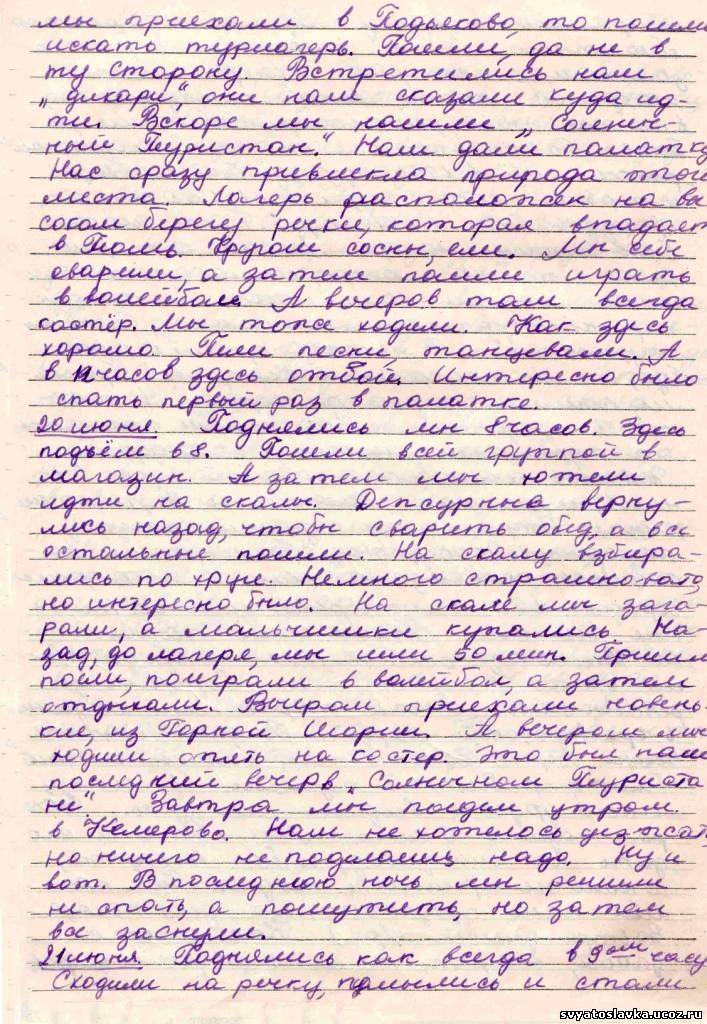 мы приехали в Подьяково, то пошли
искать турлагерь. Пошли, да не в
ту сторону. Встретились нам
„дикари“, они нам сказали куда ид-
ти. Вскоре мы нашли „Солнеч-
ный Туристан.“ Нам дали палатку
Нас сразу привлекла природа этого
места. Лагерь расположен на вы
соком берегу речки, которая впадает
в Томь. Кругом сосны, ели. Мы себе
сварили, а затем пошли играть
в волейбол. А вечеров там всегда
костёр. Мы тоже ходили. Как здесь
хорошо. Пели песни, танцевали. А
в 11 часов здесь отбой. Интересно было
спать первый раз в палатке.
20 июня. Поднялись мы 8 часов. Здесь
подъём в 8. Пошли всей группой в
магазин. А затем мы хотели
идти на скалы. Дежурные верну-
лись назад, чтобы сварить обед, а все
остальные пошли. На скалу взбира-
лись по круче. Немного страшновато,
но интересно было. На скале мы заго-
рали, а мальчишки купались. На-
зад, до лагеря, мы шли 50 мин. Пришли
поели, поиграли в волейбол, а затем
отдыхали. Вечером приехали новень-
кие, из Горной Шории. А вечером мы
ходили опять на костер. Это был наш
последний вечер в „Солнечном Туриста
не“. Завтра мы поедем утром
в Кемерово. Нам не хотелось уезжать,
но ничего не поделаешь, надо. Ну и
вот. В последнюю ночь мы решили
не спать, а пошутить, но затем
все заснули.
21 июня. Поднялись как всегда в 9ом часу
Сходили на речку, помылись и стали
svyatoslavka.ucoz.ru